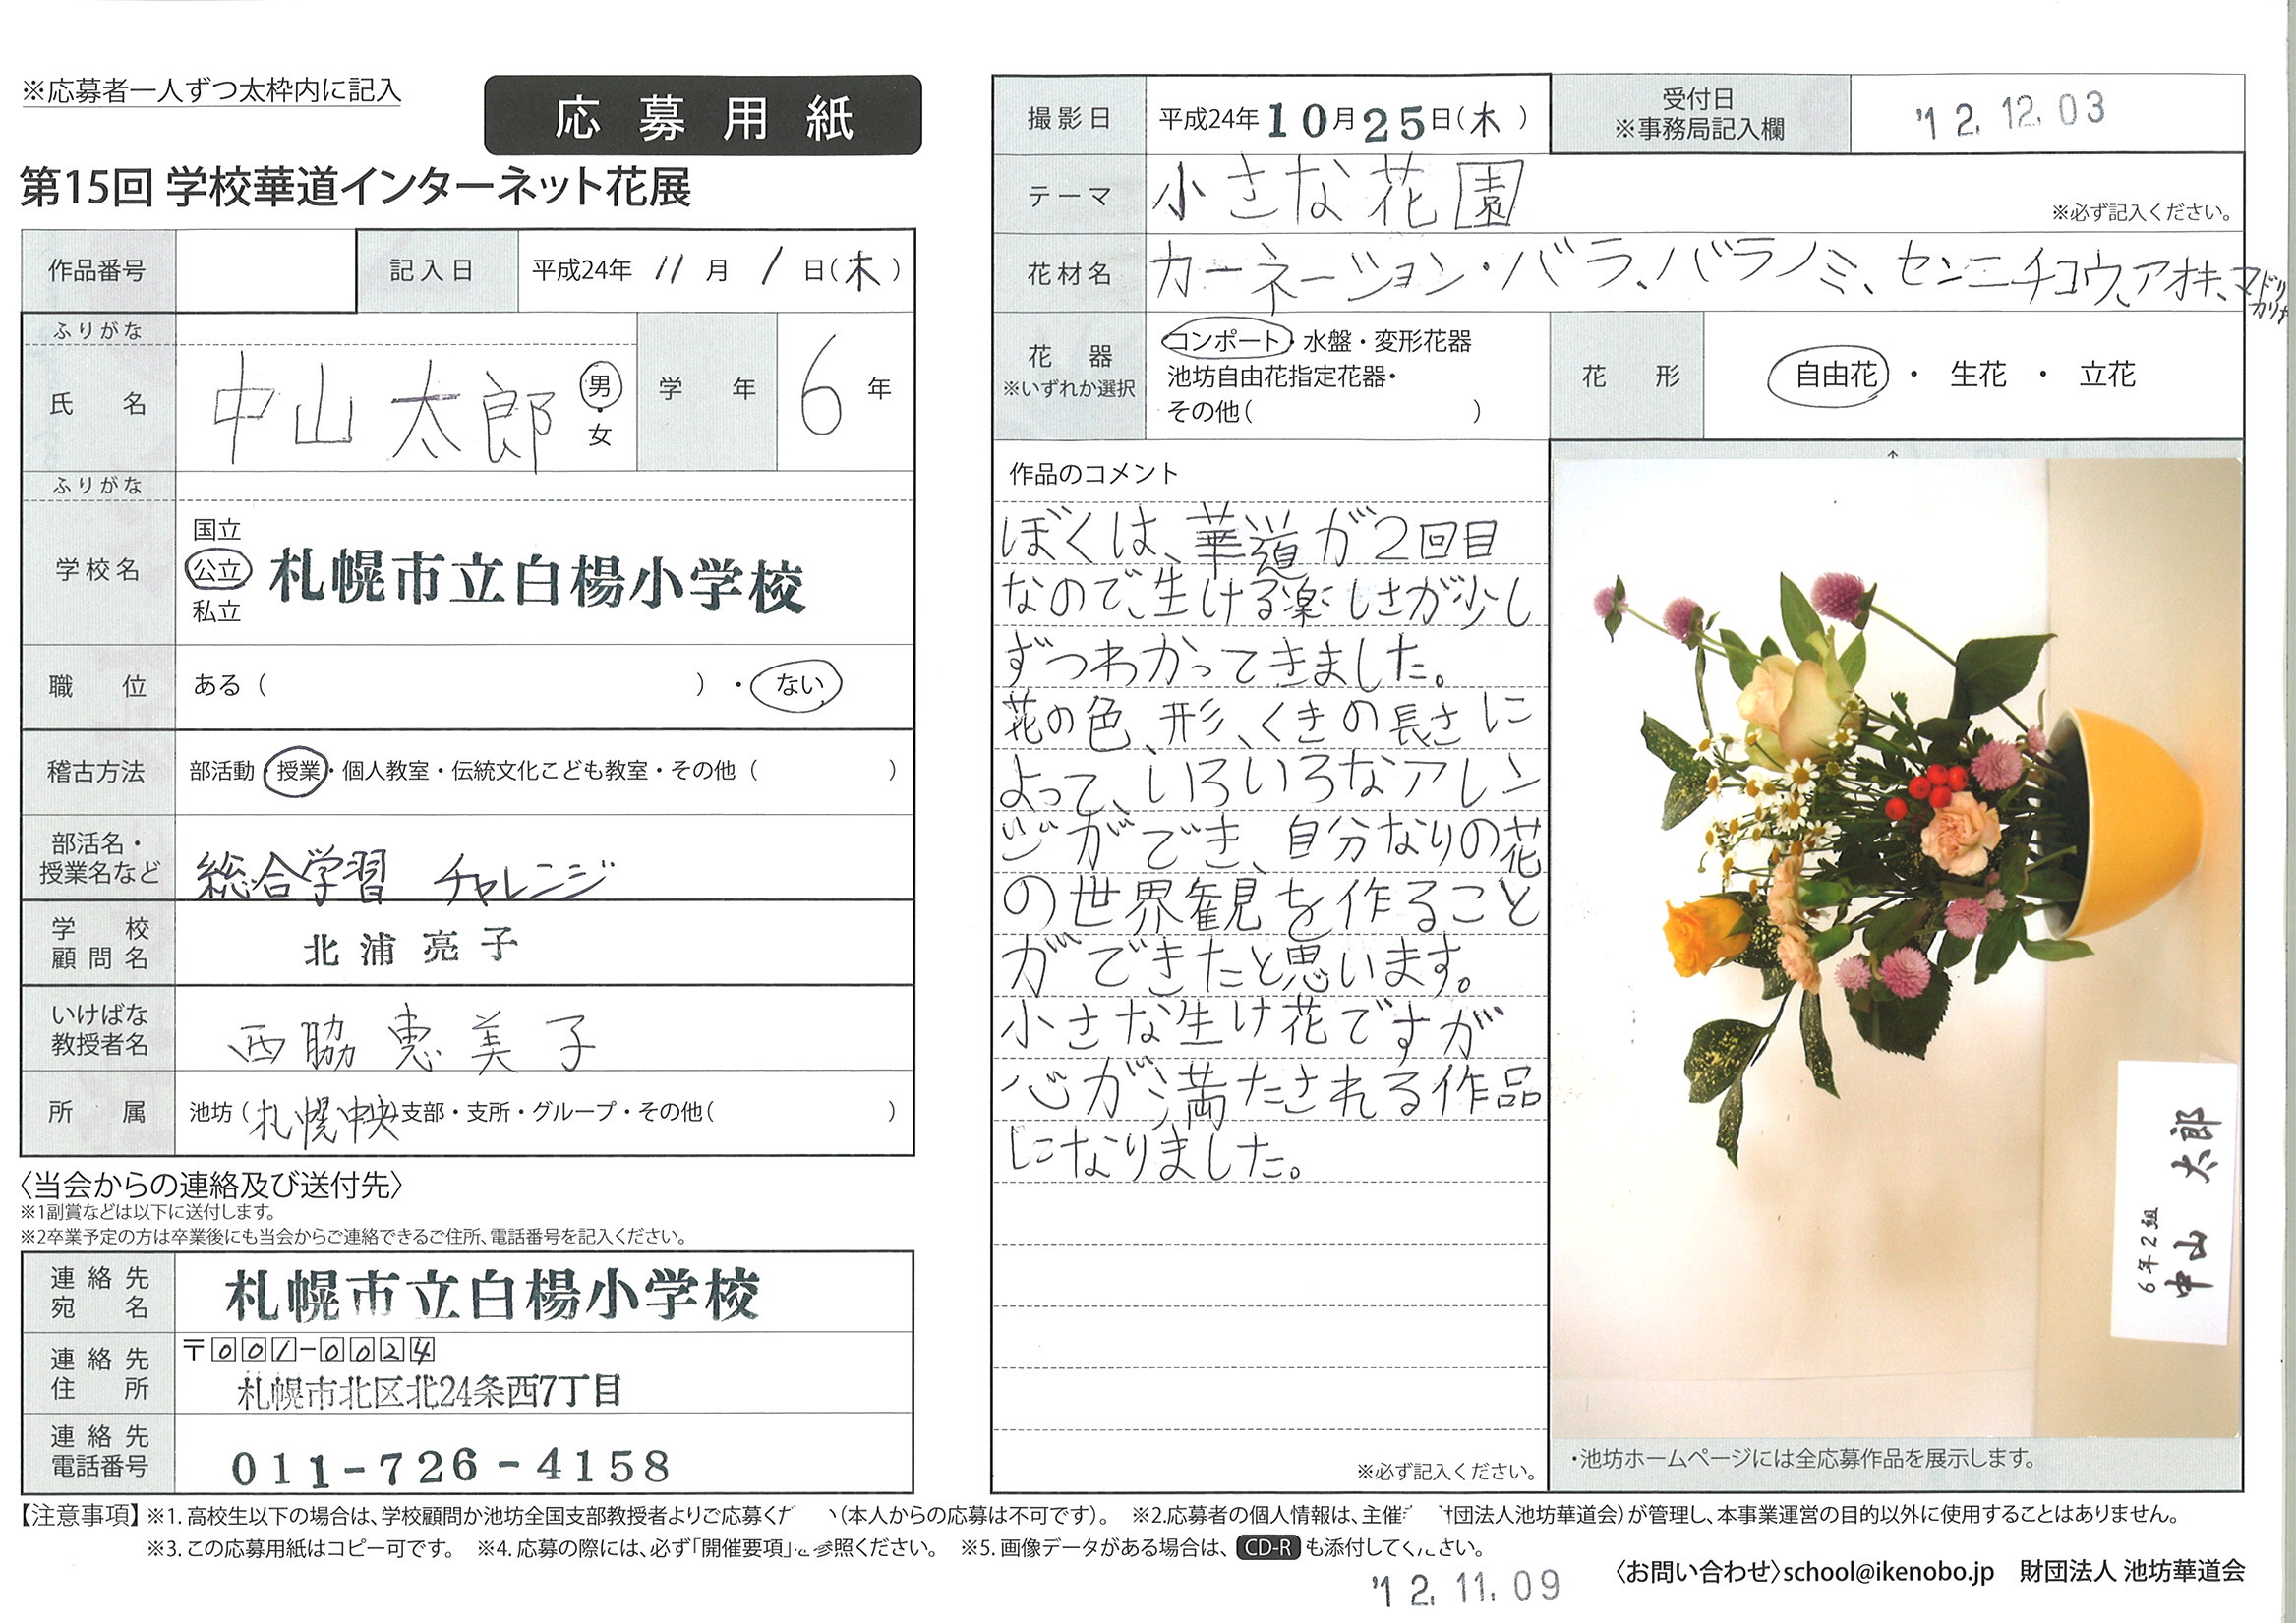 ※応募者一人ずつ太枠内に記入
応募用紙
第15回 学校華道インターネット花展
作品番号
記入日 平成24年 11月 1日(木)
ふりがな
氏名 中山太郎 男・女 学年 6年
ふりがな
学校名 国立 公立 私立 札幌市立白楊小学校
職位 ある( )・ない
稽古方法 部活動・授業・個人教室・伝統文化こども教室・その他( )
部活名・授業名など 総合学習 チャレンジ
学校顧問名 北浦亮子
いけばな教授者名 西脇恵美子
所属 池坊(札幌中央)支部・支所・グループ・その他( )
〈当会からの連絡及び送付先〉
※1副賞などは以下に送付します。
※2卒業予定の方は卒業後にも当会からご連絡できるご住所、電話番号を記入ください。
連絡先宛名 札幌市立白楊小学校
連絡先住所 〒001-0024
札幌市北区北24条西7丁目
連絡先電話番号 011-726-4158
撮影日 平成24年10月25日(木)
受付日 ※事務局記入欄 '12.12.03
テーマ 小さな花園 ※必ず記入ください。
花材名 カーネーション・バラ、バラノミ、センニチコウ、アオキ、マドリカリヤ
花器 ※いずれか選択
コンポート・水盤・変形花器
池坊自由花指定花器・
その他( )
花形 自由花・生花・立花
作品のコメント
ぼくは、華道が2回目
なので、生ける楽しさが少し
ずつわかってきました。
花の色、形、くきの長さに
よって、いろいろなアレン
ジができ、自分なりの花
の世界観を作ること
ができたと思います。
小さな生け花ですが
心が満たされる作品
になりました。
※必ず記入ください。
6年2組
中山 太郎
・池坊ホームページには全応募作品を展示します。
【注意事項】※1.高校生以下の場合は、学校顧問か池坊全国支部教授者よりご応募くだ(本人からの応募は不可です)。 ※2.応募者の個人情報は、主催 財団法人池坊華道会)が管理し、本事業運営の目的以外に使用することはありません。
※3.この応募用紙はコピー可です。 ※4.応募の際には、必ず「開催要項」を参照ください。 ※5.画像データがある場合は、CD-Rも添付してください。
〈お問い合わせ〉school@ikenobo.jp 財団法人 池坊華道会
'12.11.09